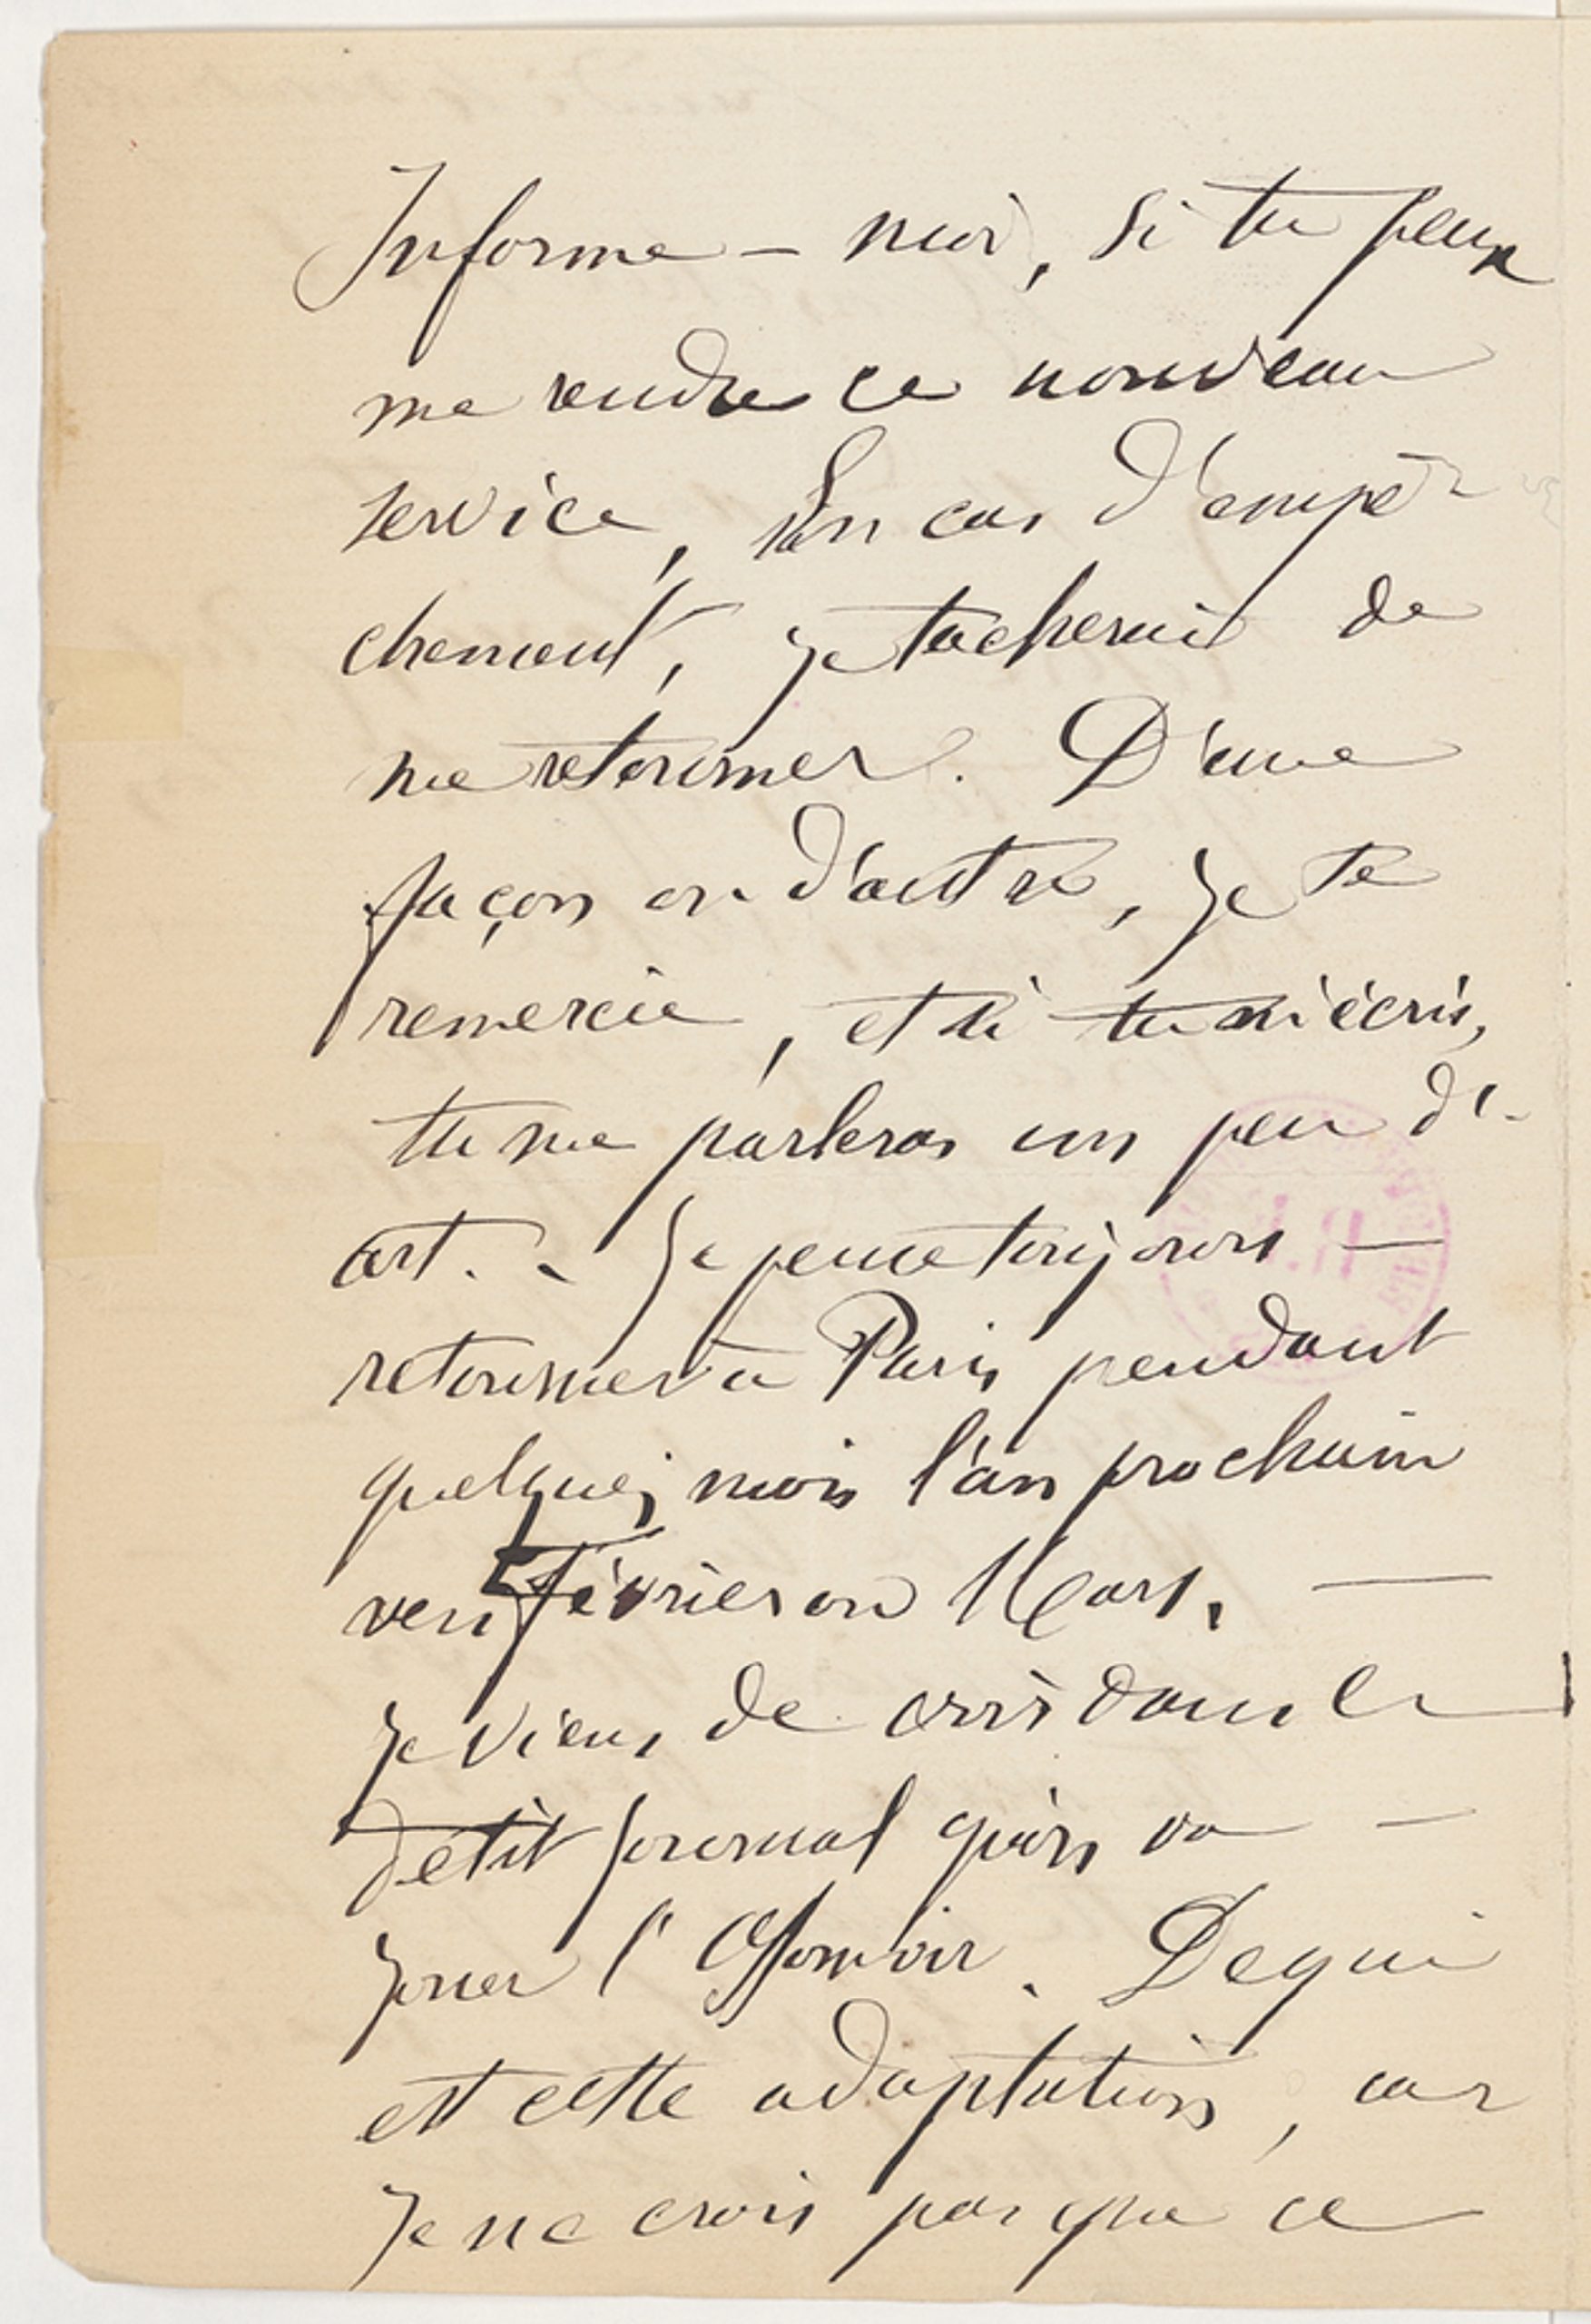 Informe-moi, si tu peux
me rendre ce nouveau
service, En cas d'empê-
chement, je tacherai de
me retourner. D'une
façon ou d'autre, je te
remercie, et si tu m'écris,
tu me parleras un peu d'-
art. - Je pense toujours -
retourner à Paris pendant
quelques mois l'an prochain
vers Février ou Mars. -
Je viens de voir dans le
Petit Journal qu'on va -
jouer l'Assommoir. De qui
est cette adaptation, car
Je ne crois pas que ce